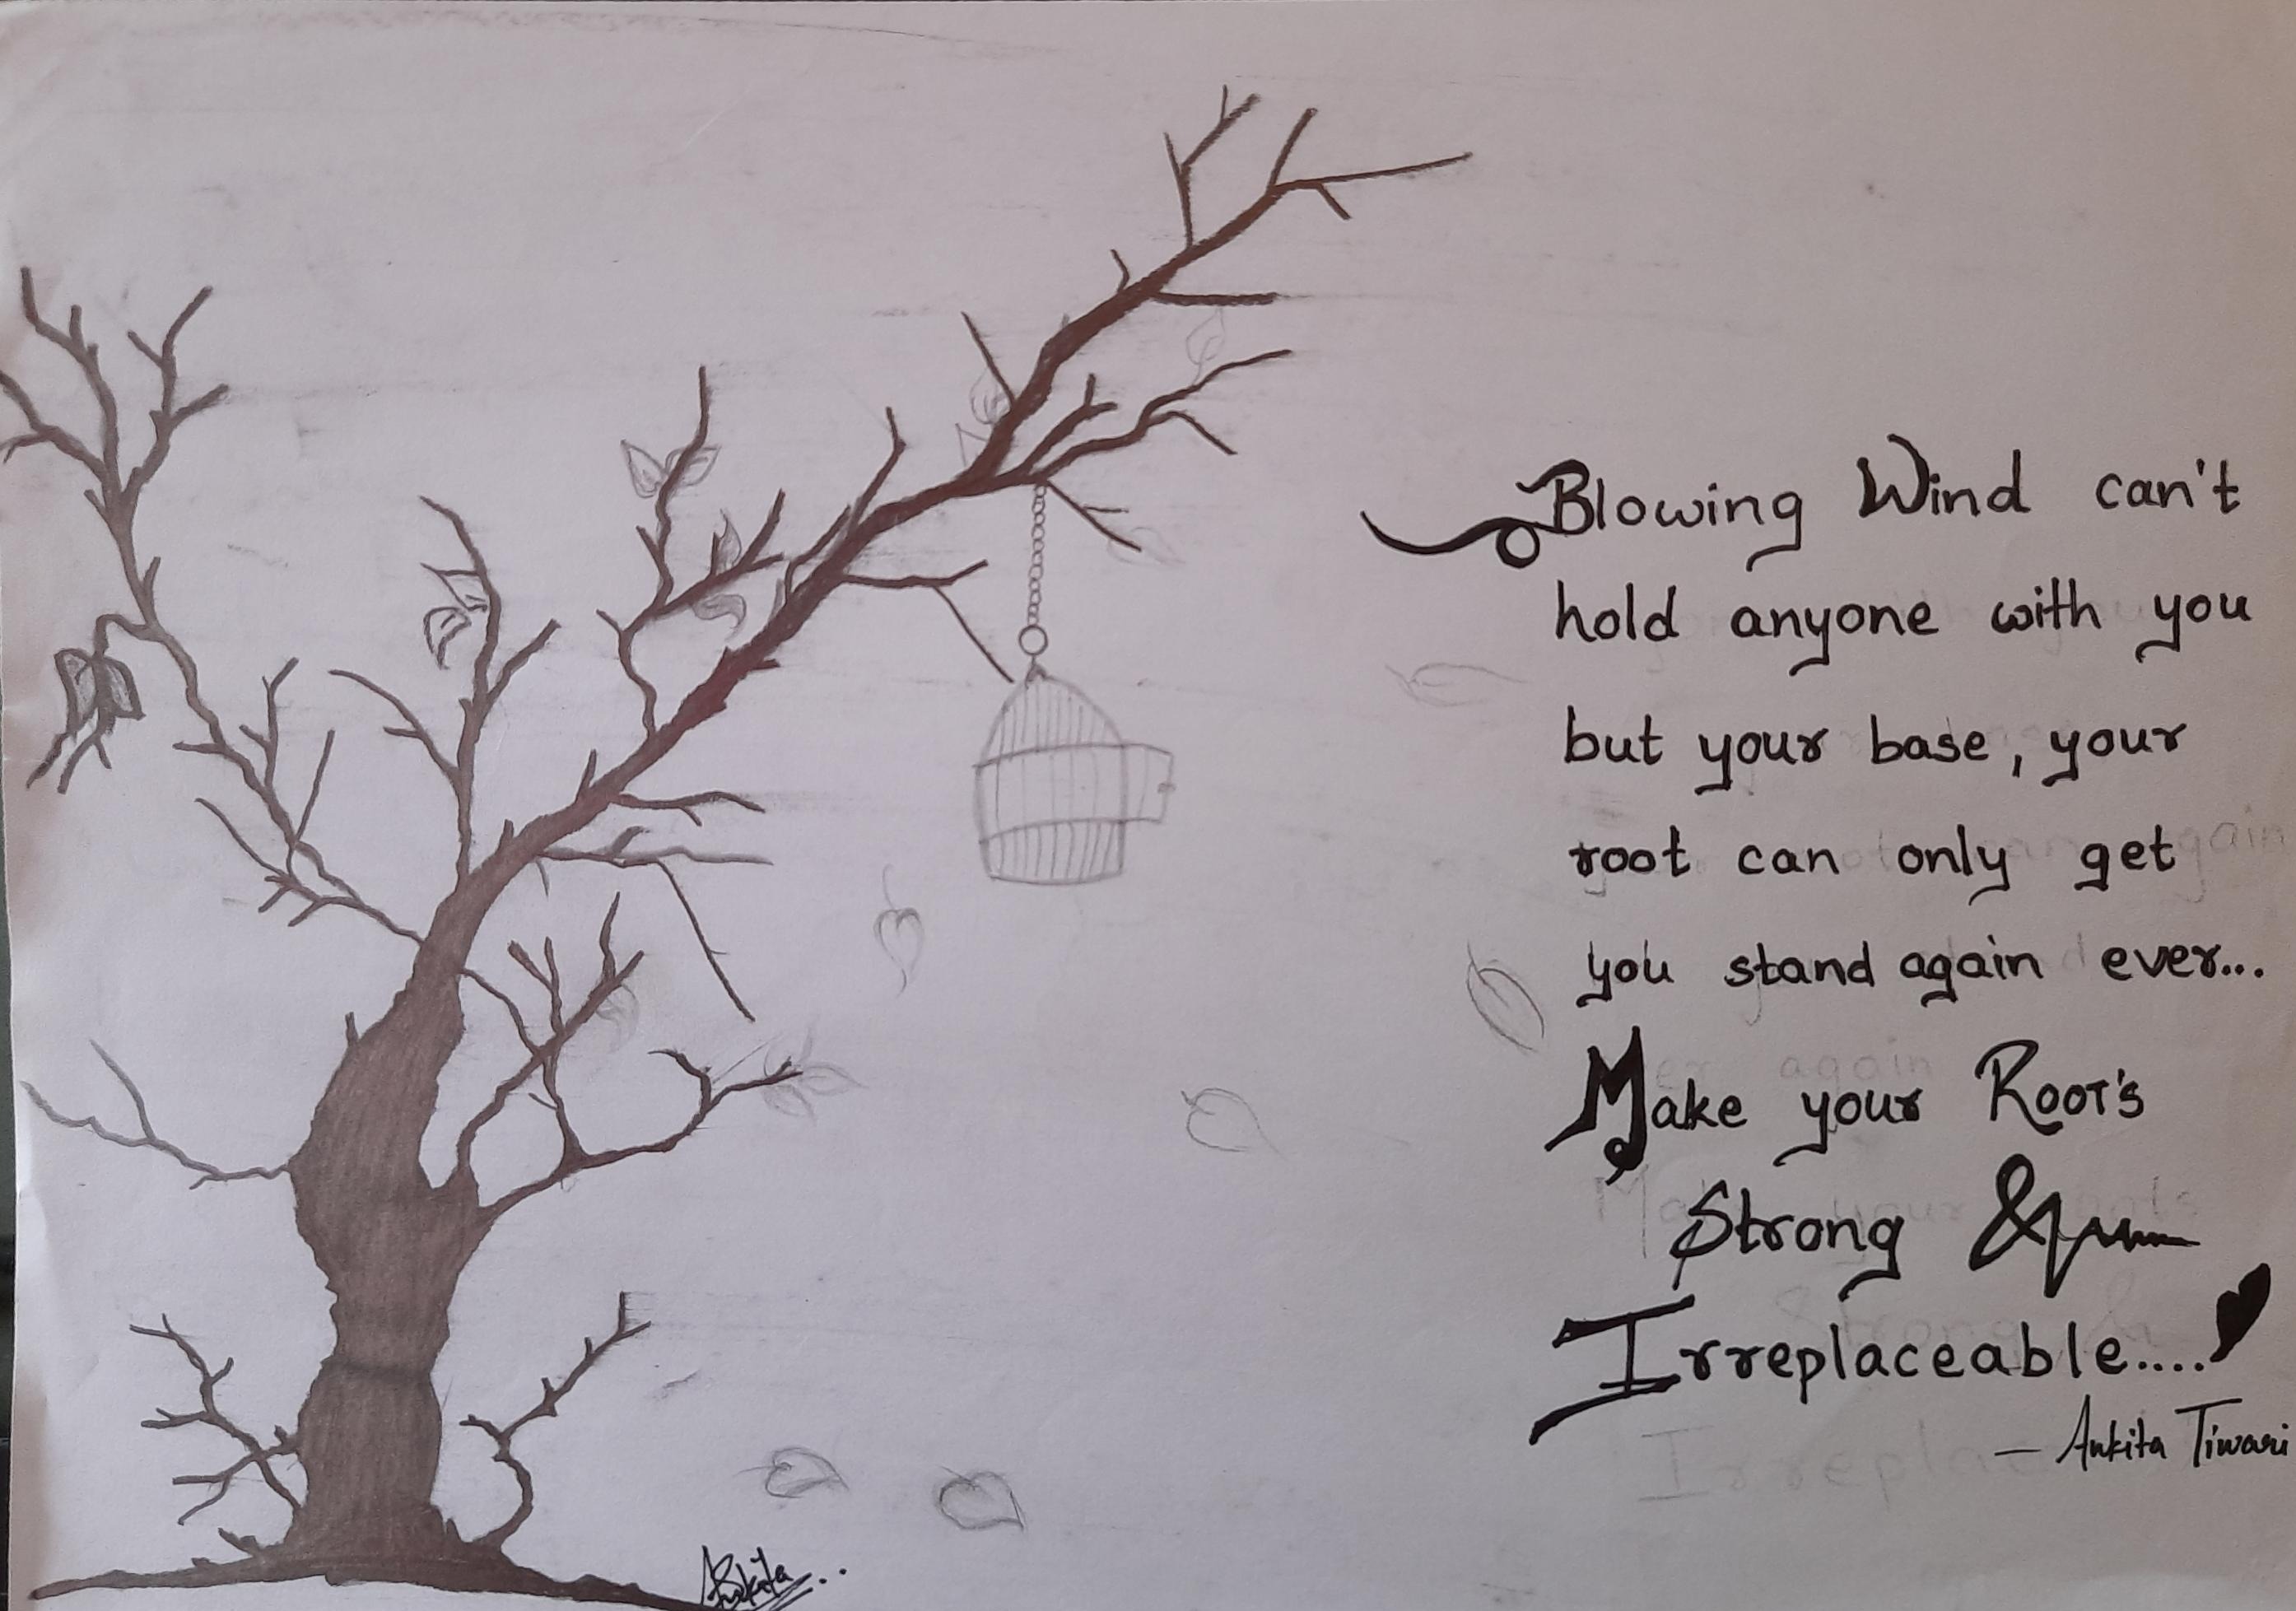 Blowing Wind can't
hold anyone with you
but your base, your
root can only get
you stand again ever...
Make your Root's
Strong &
Irreplaceable....
— Ankita Tiwari
Ankita...